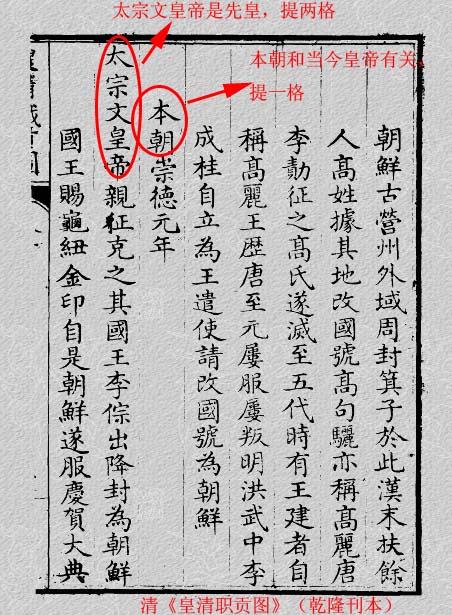 太宗文皇帝是先皇，提两格
本朝和当今皇帝有关，
提一格
朝鮮古營州外域周封箕子於此漢末扶餘
人髙姓據其地改國號髙句驪亦稱髙麗唐
李勣征之髙氏遂滅至五代時有王建者自
稱髙麗王歴唐至元屢服屢叛明洪武中李
成桂自立為王遣使請改國號為朝鮮
本朝崇德元年
太宗文皇帝親征克之其國王李倧出降封為朝鮮
國王賜龜紐金印自是朝鮮遂服慶賀大典
清《皇清职贡图》（乾隆刊本）